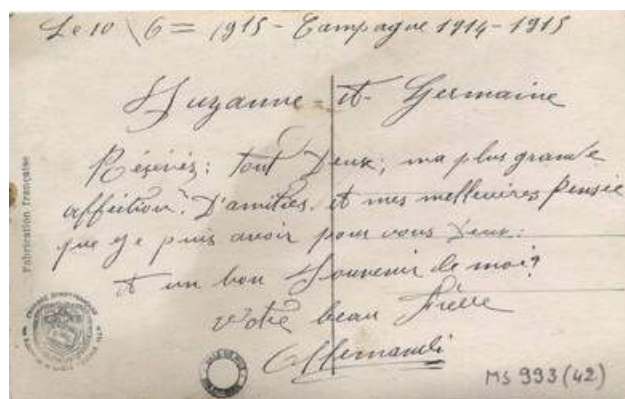 Le 10 \ 6 = 1915 - Campagne 1914-1915
Suzanne et Germaine
Résévés : tout Deux ; ma plus grande
affeition? D'amities. et mes melleuires Pensie
que ye puis avoir pour vous Deux :
et un bon Souvenir de moi?
votre beau Frère
Fabrication française
MS 993 (42)